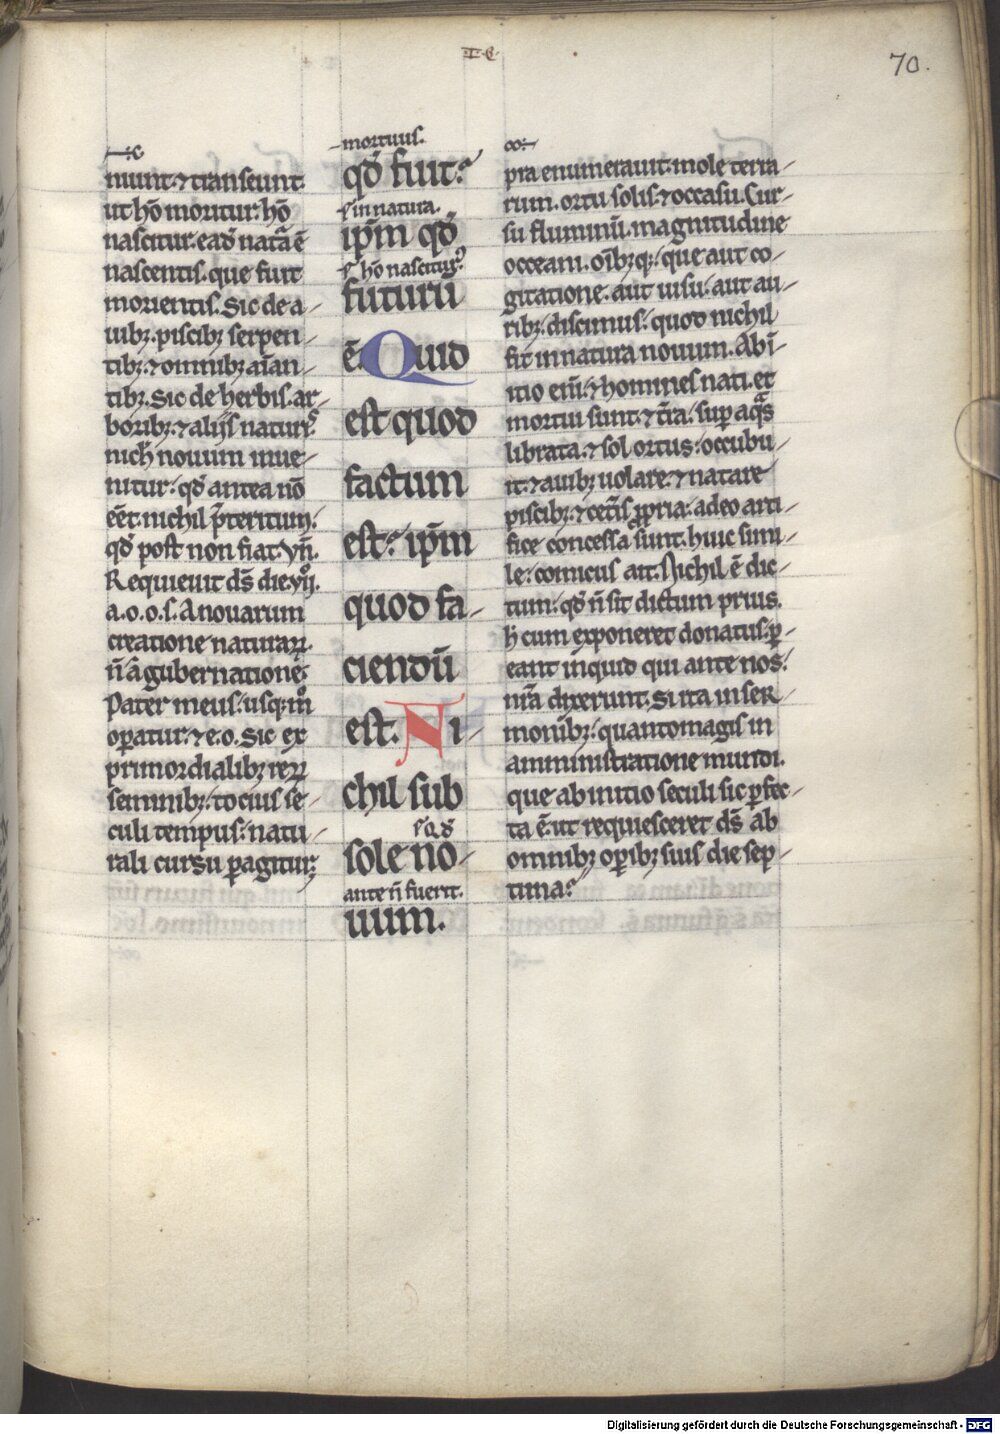 ·I·C·
70.
niunt ⁊ transeunt.
ut hō moritur. hō
nascitur. eaď nat̄a ē
nascentis. que fuit
morientis. Sic de a-
uibꝫ. piscibꝫ serpen-
tibꝫ. ⁊ omnibꝫ aīan-
tibꝫ. Sic de herbis. ar-
boribꝫ. ⁊ alijs naturꝭ
nich̄ nouum inue-
nitur. qď antea nō
eēt. nichil p̄teritum.
qď post non fiat. vn̄.
Requieuit d̄s die vij.
a.o.o.s. A nouarum
creatione naturaꝝ.
n̄ a gubernatione.
Pater meus usqꝫ m̊
oꝑatur. ⁊ e.o. Sic ex
primordialibꝫ reꝝ
seminibꝫ. tocius se-
culi tempus. natu-
rali cursu ꝑagitur.
mortuus.
qď fuit?
s̄ in natura.
ip̄m qď
s̄ hō nascitur.
futurū
ē. Quid
est quod
factum
est? ip̄m
quod fa-
ciendū
est. Ni-
chil sub
s̄ qď
sole no-
ante n̄ fuerit.
uum.
pra enumerauit. mole terra-
rum. ortu solis. ⁊ occasu. Cur-
su fluminū. magnitudine
occeani. oībꝫqꝫ. que aut co-
gitatione. aut uisu. aut au-
ribꝫ. discimus. quod nichil
fit in natura nouum. Ab ī-
itio eni. ⁊ homines nati. et
mortui sunt. ⁊ t̄ra. suꝑ aq̄s
librata. ⁊ sol ortus. occubu-
it. ⁊ auibꝫ uolare. ⁊ natare
piscibꝫ. ⁊ cet̄is ꝓpria. adeo arti-
fice concessa sunt. huic simi-
le. comicus ait. Nichil ē dic-
tum. qď n̄ sit dictum prius.
h̄ cum exponeret donatus. ꝑ-
eant inquid qui ante nos.
nr̄a dixerunt. Si ita in ser-
monibꝫ. quanto magis in
amministratione mundi.
que ab initio seculi sic ꝑfec-
ta ē. ut requiesceret d̄s ab
omnibꝫ oꝑibꝫ suis die sep-
tima?
Digitalisierung gefördert durch die Deutsche Forschungsgemeinschaft - DFG